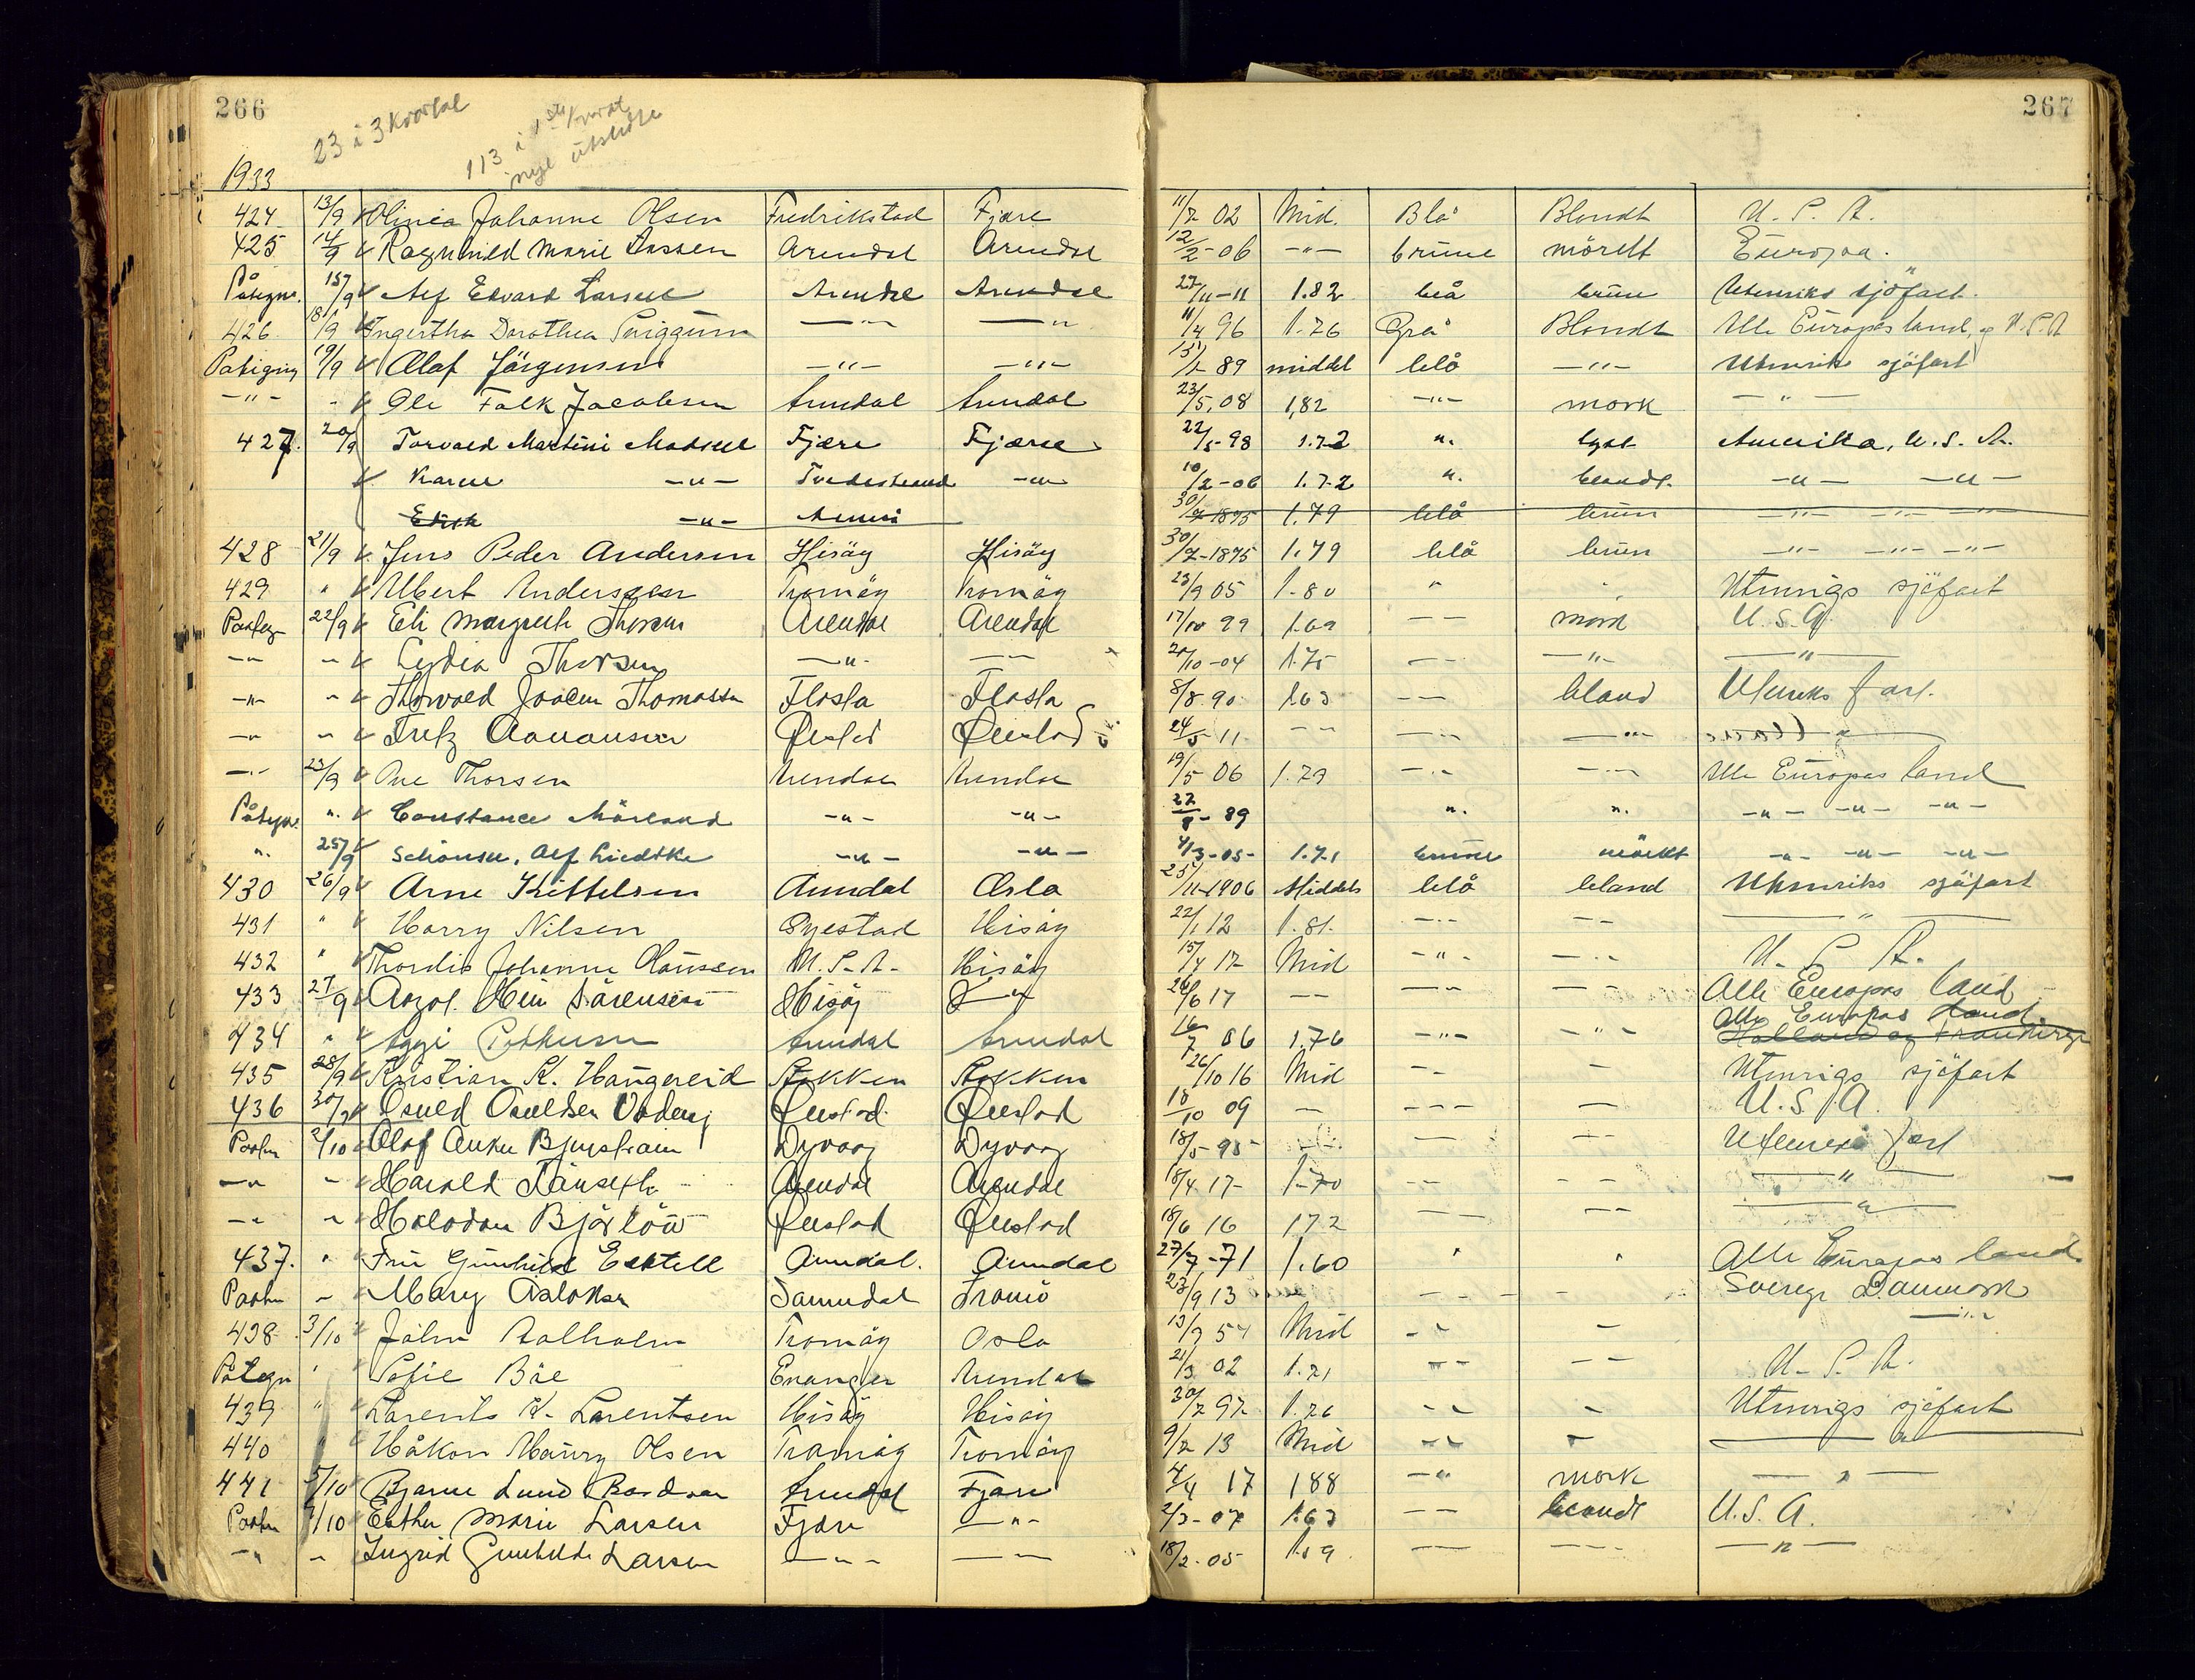 266
267
23 i 3 kvartal
113 i 1ste kvart
nye utstedte
1933
424 13/9 Olivia Johanne Olsen Fredrikstad Fjære 11/7 02 Mid. Blå Blondt U. S. A.
425 14/9 Ragnhild Marie Larsen Arendal Arendal 12/2-06 -"- brune mörkt Europa.
Påtegn. 15/9 Alf Edvard Larsen Arendal Arendal 27/11-11 1.82 blå brun Utenriks sjöfart.
426 18/9 Ingertha Dorothea -"- -"- 11/4 96 1.76 Grå Blondt Alle Europas land, og U.S.A
Påtegning 19/9 Olaf Jörgensen -"- -"- 89 middel blå -"- Utenriks sjöfart
-"- - Ole Falk Jacobsen Arendal Arendal 23/5.08 1,82 -"- mörk -"-
427. 20/9 Torvald Martini Madsen Fjære Fjære 22/5-98 1.72 ". lyst Amerika, U.S.A.
Karen -"- Tvedestrand -"- 10/2-06 1.72 ". blondt. -"- -"-
Edith -"- 30/7 1875 1.79 blå brun -"- -"- -"-
428 21/9 Jens Peder Andersen Hisöy Hisöy 30/7-1875 1.79 blå brun -"- -"- -"-
429 " Albert Anderssen Tromöy Tromöy 23/9 05 1.80 " " Utenrigs sjöfart
22/9 Eli Margreth Thorsen Arendal Arendal 17/10 99 1.69 -- mörk U.S.A.
-"- -"- Lydia Thorsen -"- -"- 20/10-04 1.75 -- -"- -"-
-"- -"- Thorvald Thomassen Flosta Flosta 8/8.90 1.63 -- blond Utenriks fart.
-"- -"- Fritz Öiestad Öiestad 24/5 11 -- -"- -"- -"-
-"- 23/9 Ane Thorsen Arendal Arendal 19/5 06 1.79 -"- -"- Alle Europas land
Påtegn. ". Constance Mörland -"- -"- 27/8-89 ". ". -"- -"- -"-
". 25/9 Schönsee, Alf Liedtke -"- -"- 4/3-05- 1.71 brune mörkt -"- -"- -"-
430 26/9 Arne Kittelsen Arendal Oslo 25/11-1906 Middels blå blond Utenriks sjöfart
431 " Harry Nilsen Öyestad Hisöy 22/1 12 1.81. -"- -- -"-
432 " Thordis Johanne Hanssen U.S.A. Hisöy 15/7 17 Mid -"- -"- U. S. A.
433 27/9 Sörensen Hisöy -"- 26/6 17 -- -"- -- Alle Europas land
434 " Aagi Pettersen Arendal Arendal 16/7 06 1,76 -"- -"- Alle Europas land.
Holland og Frankrige
435 28/9 Kristian K. Haugereid Stokken Stokken 26/10 16 Mid -- - Utenrigs sjöfart
436 30/9 Osuld Osuldsen Öiestad Öiestad 18/10 09 - -- -- U.S.A.
2/10 Olaf Anker Dyvaag Dyvaag 18/5-95 -- -- Utenriks fart
-"- - Harald Arendal Arendal 18/4 17- 1-70 -- - -"-
-"- " Halvdan Björlöw Öiestad Öiestad 18/6 16 172 -- -- -"-
437. " Fru Gunhild Arendal. Arendal 27/7-71 1.60 " " Alle Europas land
- Mary Aslaksen Tromö 23/9 13 -- - Sverige Danmark
438. 3/10 John Aalholm Tromöy Oslo 13/9 54 Mid -- - -"-
Påtegn " Sofie Böe Evanger Arendal 21/3 02 1.71 -- -- U. S. A.
439 " Larents K. Larentsen Hisöy Hisöy 30/7 97 1.76 -- - Utenrigs sjöfart
440 " Håkon Olsen Tromöy Tromöy 9/2 13 Mid -- - -"-
441 5/10 Bjarne Lund Arendal Fjære 4/4 17 188 -"- mörk -"-
7/10 Esther Marie Larsen Fjære -"- 2/3-07 1.63 -- blondt U.S.A.
-"- - Ingrid Gunhilde Larsen -"- -"- 18/2.05 1.59 -- -- -"-